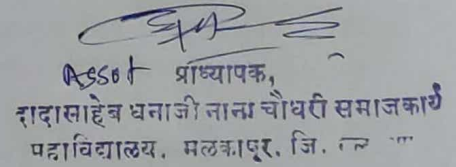 Asst प्राध्यापक,
दादासाहेब धनाजी नाना चौधरी समाजकार्य
महाविद्यालय. मलकापूर. जि.